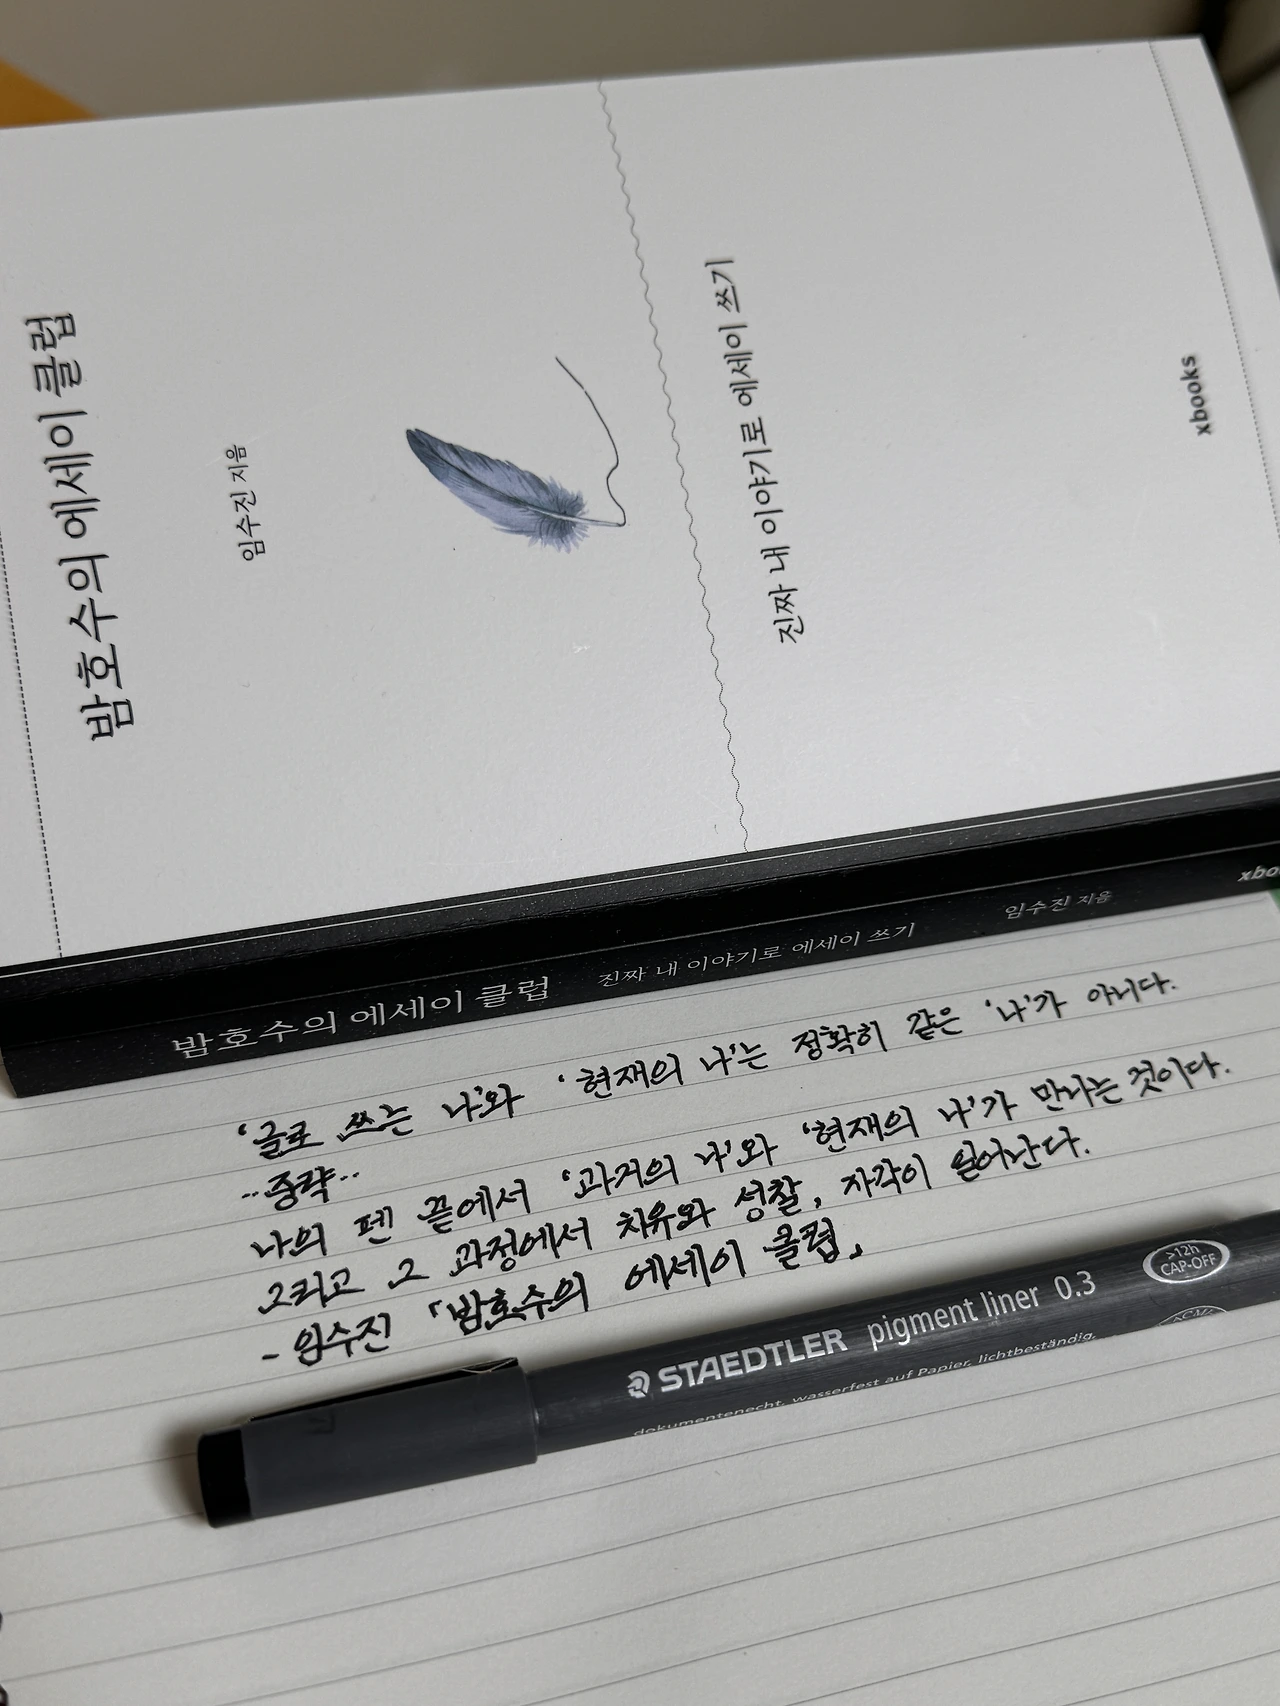 밤호수의 에세이 클럽
임수진 지음
진짜 내 이야기로 에세이 쓰기
xbooks
밤호수의 에세이 클럽 진짜 내 이야기로 에세이 쓰기 임수진 지음
'글로 쓰는 나'와 '현재의 나'는 정확히 같은 '나'가 아니다.
··중략··
나의 펜 끝에서 '과거의 나'와 '현재의 나'가 만나는 것이다.
그리고 그 과정에서 치유와 성찰, 자각이 일어난다.
- 임수진 「밤호수의 에세이 클럽」
STAEDTLER pigment liner 0.3
>12h
CAP-OFF
dokumentenecht, wasserfest auf Papier, lichtbeständig,